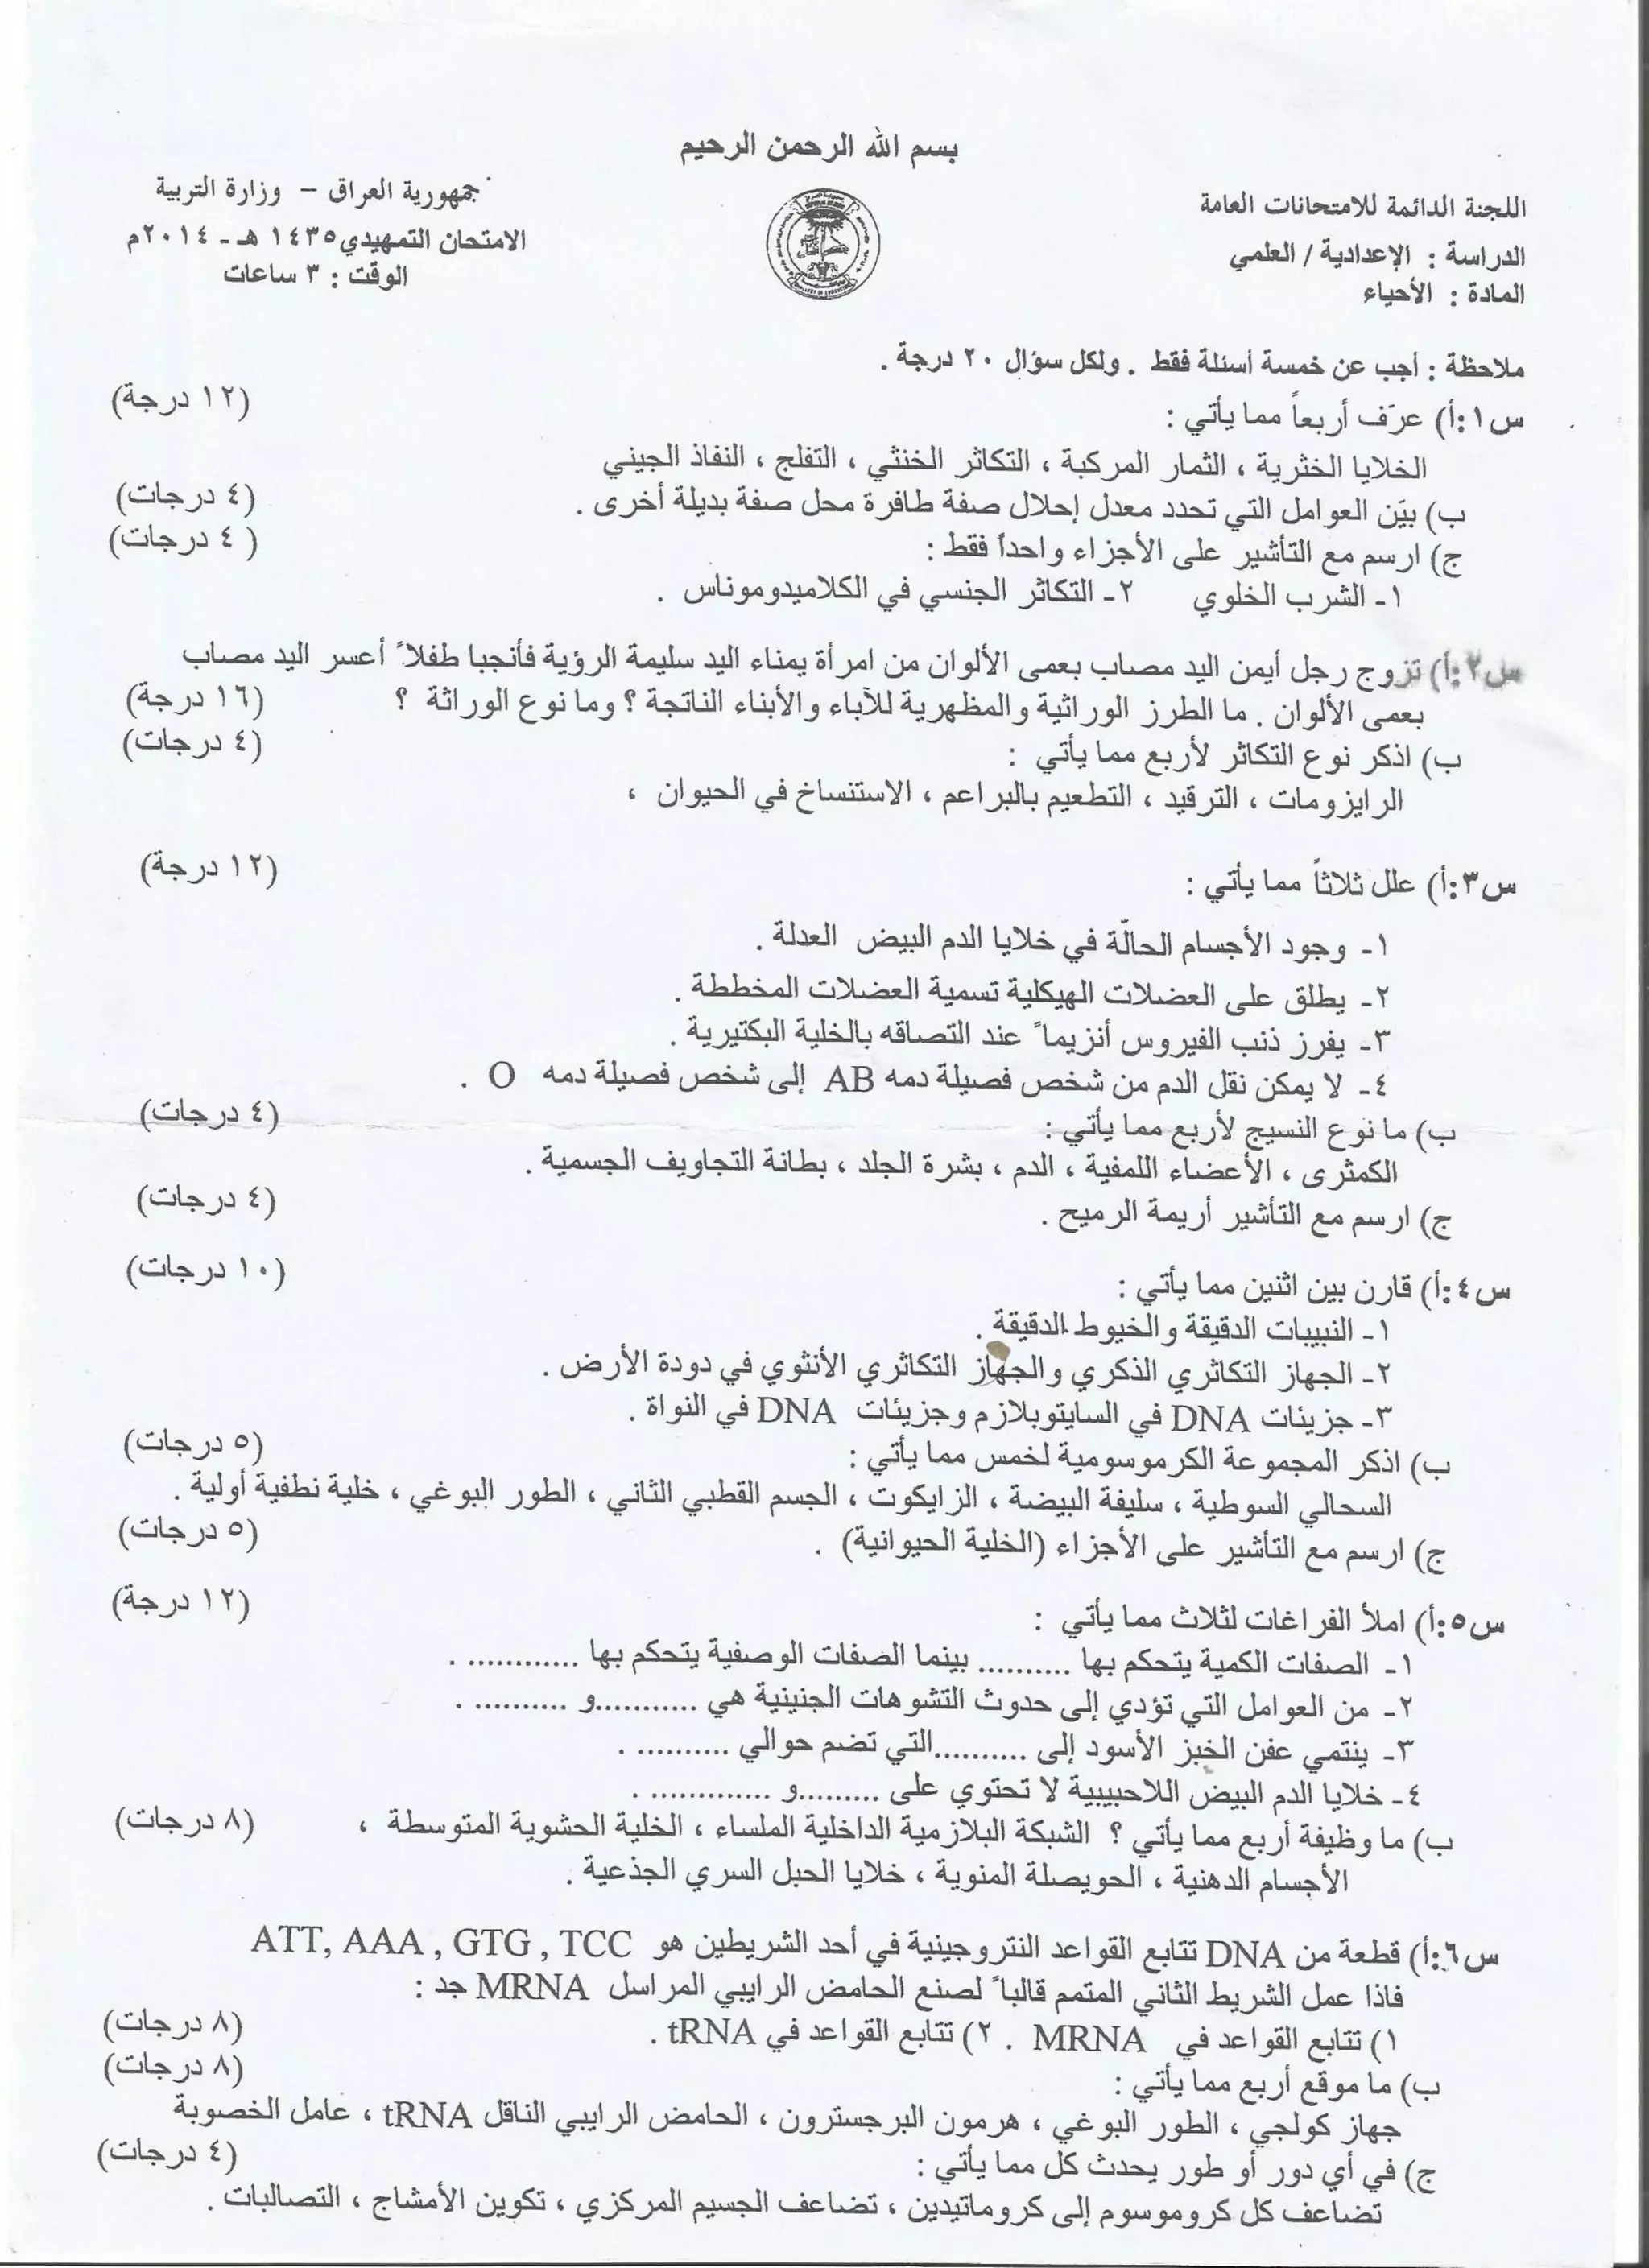 بسم الله الرحمن الرحيم
اللجنة الدائمة للامتحانات العامة
الدراسة : الإعدادية / العلمي
المادة : الأحياء
جمهورية العراق – وزارة التربية
الامتحان التمهيدي ١٤٣٥ هـ - ٢٠١٤م
الوقت : ٣ ساعات
ملاحظة : أجب عن خمسة أسئلة فقط . ولكل سؤال ٢٠ درجة .
س١:أ) عرّف أربعاً مما يأتي : (١٢ درجة)
الخلايا الخثرية ، الثمار المركبة ، التكاثر الخنثي ، التفلج ، النفاذ الجيني
ب) بيّن العوامل التي تحدد معدل إحلال صفة طافرة محل صفة بديلة أخرى . (٤ درجات)
ج) ارسم مع التأشير على الأجزاء واحداً فقط : (٤ درجات)
١- الشرب الخلوي ٢- التكاثر الجنسي في الكلاميدوموناس .
س٢:أ) تزوج رجل أيمن اليد مصاب بعمى الألوان من امرأة يمناء اليد سليمة الرؤية فأنجبا طفلاً أعسر اليد مصاب
بعمى الألوان . ما الطرز الوراثية والمظهرية للآباء والأبناء الناتجة ؟ وما نوع الوراثة ؟ (١٦ درجة)
ب) اذكر نوع التكاثر لأربع مما يأتي : (٤ درجات)
الرايزومات ، الترقيد ، التطعيم بالبراعم ، الاستنساخ في الحيوان ،
س٣:أ) علل ثلاثاً مما يأتي : (١٢ درجة)
١- وجود الأجسام الحالّة في خلايا الدم البيض العدلة .
٢- يطلق على العضلات الهيكلية تسمية العضلات المخططة .
٣- يفرز ذنب الفيروس أنزيماً عند التصاقه بالخلية البكتيرية .
٤- لا يمكن نقل الدم من شخص فصيلة دمه AB إلى شخص فصيلة دمه O .
ب) ما نوع النسيج لأربع مما يأتي : (٤ درجات)
الكمثرى ، الأعضاء اللمفية ، الدم ، بشرة الجلد ، بطانة التجاويف الجسمية .
ج) ارسم مع التأشير أريمة الرميح . (٤ درجات)
س٤:أ) قارن بين اثنين مما يأتي : (١٠ درجات)
١- النبيبات الدقيقة والخيوط الدقيقة .
٢- الجهاز التكاثري الذكري والجهاز التكاثري الأنثوي في دودة الأرض .
٣- جزيئات DNA في السايتوبلازم وجزيئات DNA في النواة .
ب) اذكر المجموعة الكرموسومية لخمس مما يأتي : (٥ درجات)
السحالي السوطية ، سليفة البيضة ، الزايكوت ، الجسم القطبي الثاني ، الطور البوغي ، خلية نطفية أولية .
ج) ارسم مع التأشير على الأجزاء (الخلية الحيوانية) . (٥ درجات)
س٥:أ) املأ الفراغات لثلاث مما يأتي : (١٢ درجة)
١- الصفات الكمية يتحكم بها .......... بينما الصفات الوصفية يتحكم بها ............ .
٢- من العوامل التي تؤدي إلى حدوث التشوهات الجنينية هي ...........و .......... .
٣- ينتمي عفن الخبز الأسود إلى ..........التي تضم حوالي .......... .
٤- خلايا الدم البيض اللاحبيبية لا تحتوي على .........و ............. .
ب) ما وظيفة أربع مما يأتي ؟ الشبكة البلازمية الداخلية الملساء ، الخلية الحشوية المتوسطة ، (٨ درجات)
الأجسام الدهنية ، الحويصلة المنوية ، خلايا الحبل السري الجذعية .
س٦:أ) قطعة من DNA تتابع القواعد النتروجينية في أحد الشريطين هو ATT, AAA , GTG , TCC
فاذا عمل الشريط الثاني المتمم قالباً لصنع الحامض الرايبي المراسل MRNA جد :
١) تتابع القواعد في MRNA . ٢) تتابع القواعد في tRNA . (٨ درجات)
ب) ما موقع أربع مما يأتي : (٨ درجات)
جهاز كولجي ، الطور البوغي ، هرمون البرجسترون ، الحامض الرايبي الناقل tRNA ، عامل الخصوبة
ج) في أي دور أو طور يحدث كل مما يأتي : (٤ درجات)
تضاعف كل كروموسوم إلى كروماتيدين ، تضاعف الجسيم المركزي ، تكوين الأمشاج ، التصالبات .